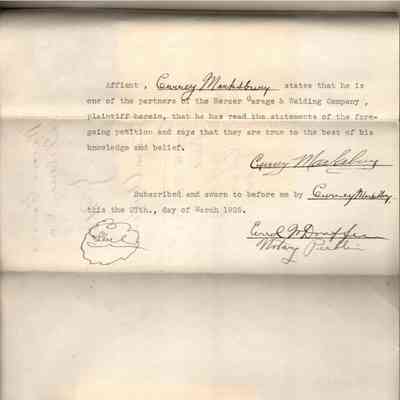 Affiant, Curney Marksbury states that he is
one of the partners of the Mercer Garage & Welding Company,
plaintiff herein, that he has read the statements of the fore-
going petition and says that they are true to the best of his
knowledge and belief.
Curney Marksbury
Subscribed and sworn to before me by Curney Marksbury
this the 27th., day of March 1925.
Seal
Notary Public